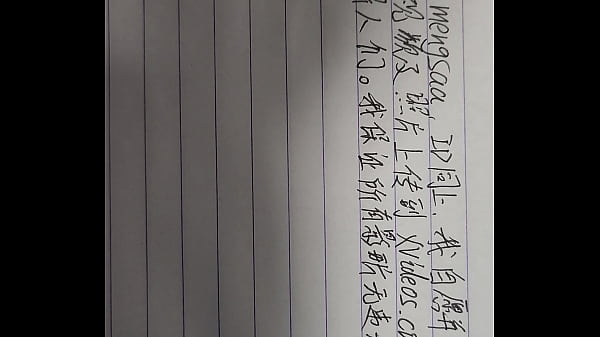 mengsaa, ID同上, 我自愿将
视频及照片上传到 Xvideos.c
人们。我保证所有影